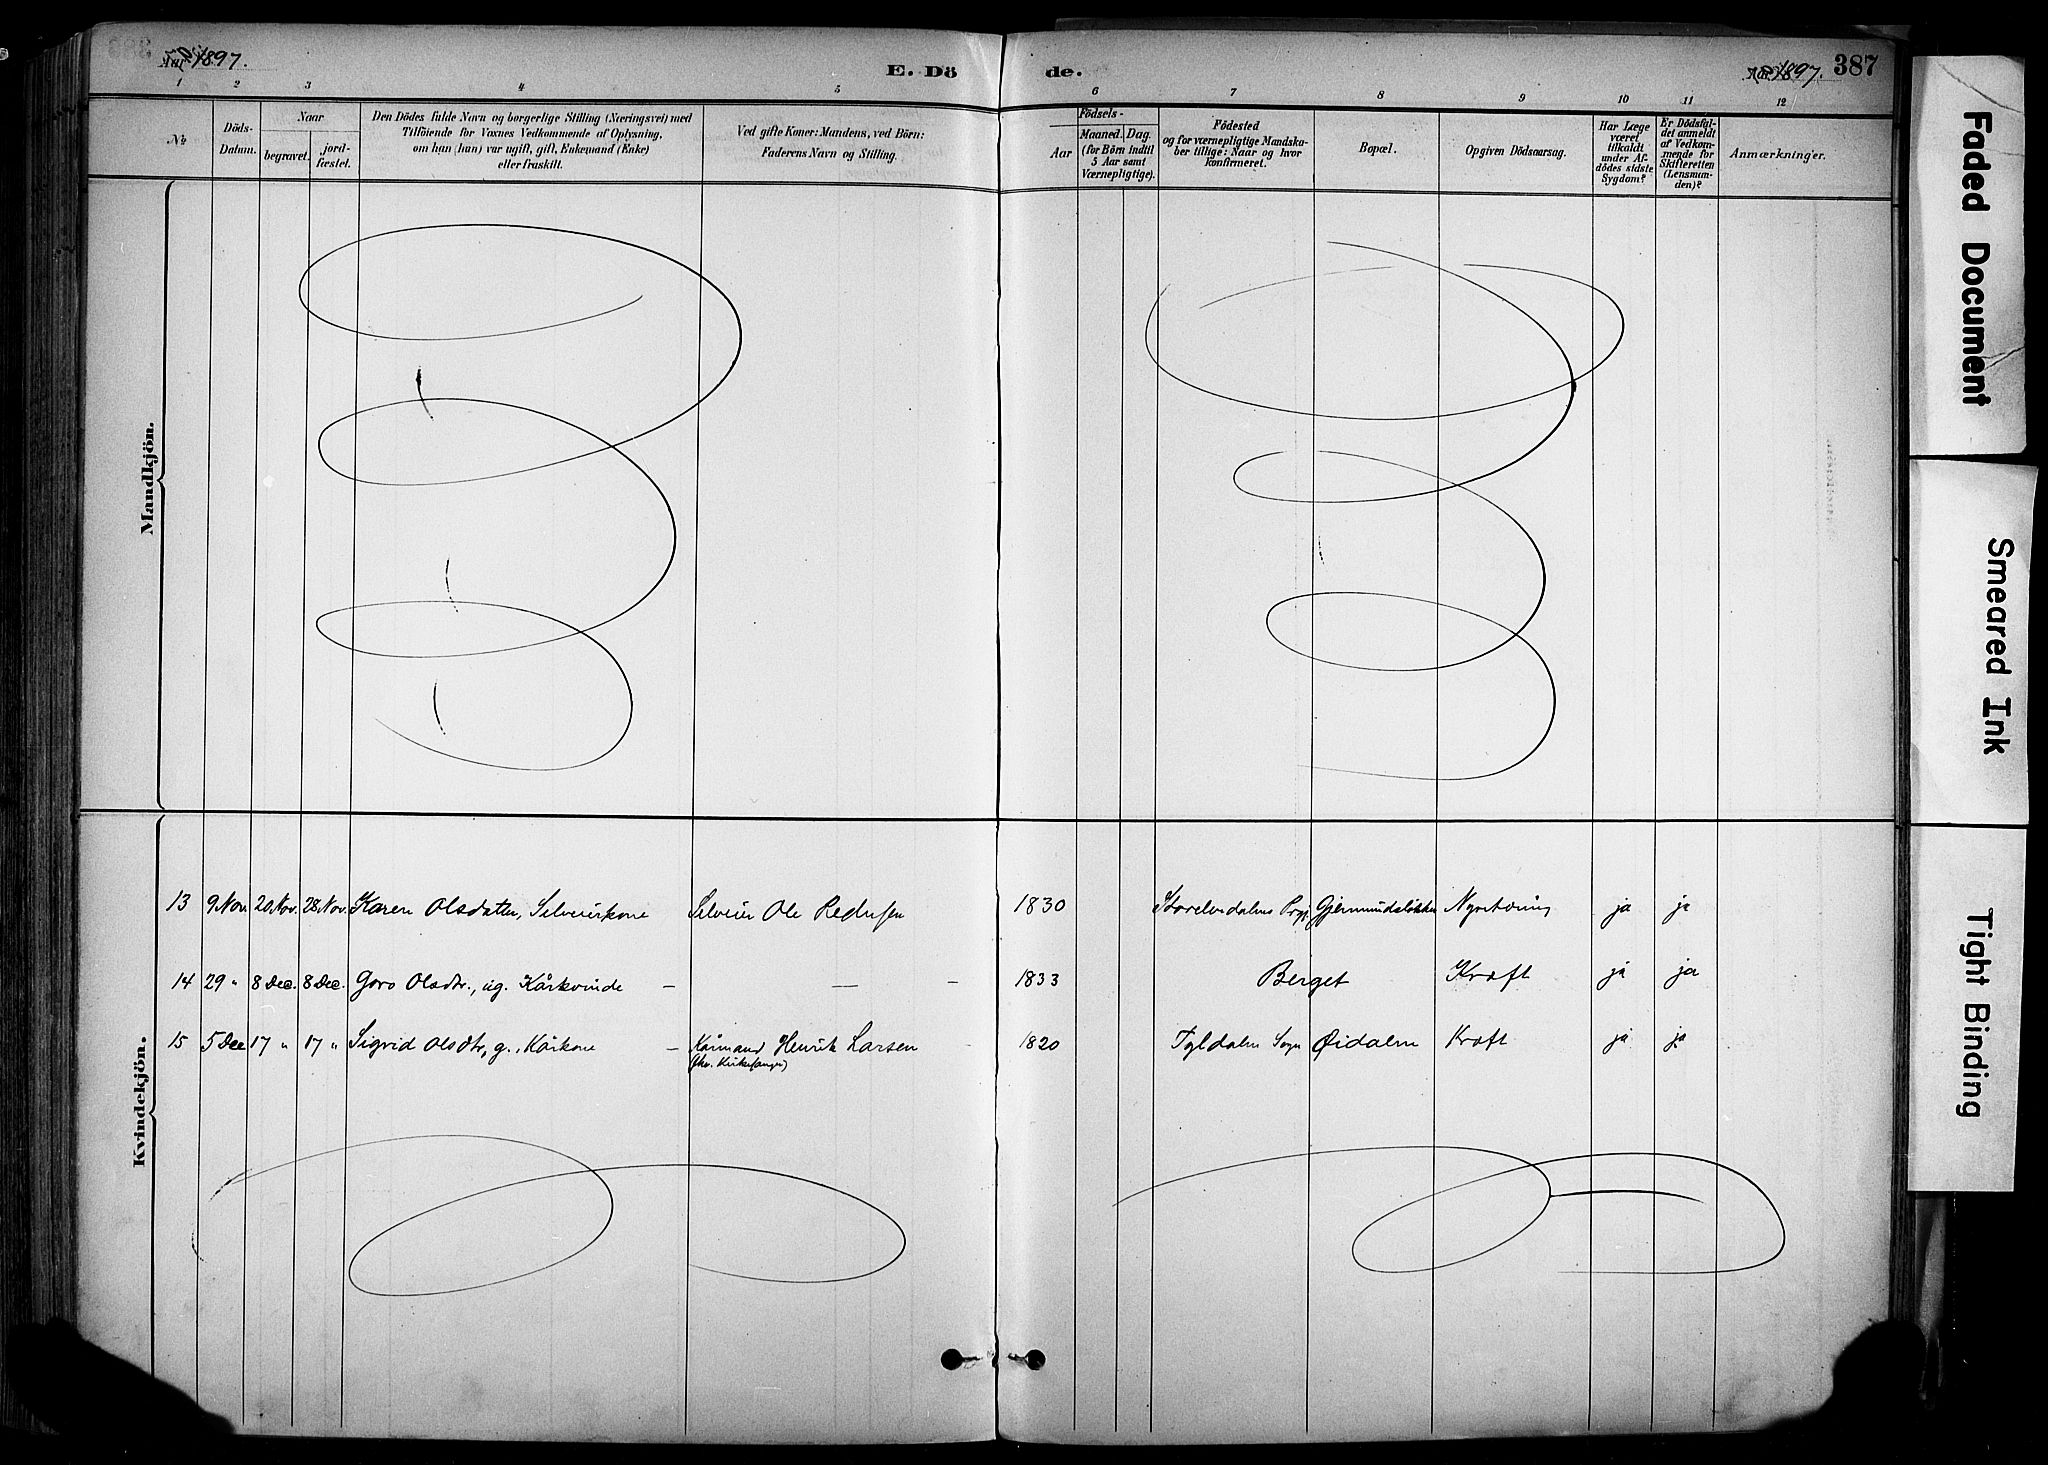 Aar 1897.
E. Dö
de.
Aar 1897. 387
1 2 3 4 5 6 7 8 9 10 11 12
№
Döds-
Datum.
Naar
begravet.
jord-
fæstet.
Den Dödes fulde Navn og borgerlige Stilling (Næringsvei) med
Tilföiende for Voxnes Vedkommende af Oplysning,
om han (hun) var ugift, gift, Enkemand (Enke)
eller fraskilt.
Ved gifte Koner: Mandens, ved Börn:
Faderens Navn og Stilling.
Födsels-
Aar
Maaned. Dag.
(for Börn indtil
5 Aar samt
Værnepligtige).
Födested
og for værnepligtige Mandska-
ber tillige: Naar og hvor
konfirmeret.
Bopæl.
Opgiven Dödsaarsag.
Har Læge
været
tilkaldt
under Af-
dödes sidste
Sygdom?
Er Dödsfal-
det anmeldt
af Vedkom-
mende for
Skifteretten
(Lensman-
den)?
Anmærkninger.
Mandkjön.
Kvindekjön.
13 9 Nov. 20 Nov. 28 Nov. Karen Olsdatter, Selveierkone Selveier Ole Pedersen 1830 Storelvedalens Prgj. Gjermundsløkken ja ja
14 29 " 8 Dec. 8 Dec. Goro Olsdtr., ug. Kårkvinde — — — 1833 Berget Kræft ja ja
15 5 Dec 17 " 17 " Sigrid Olsdtr, g. Kårkone — Kårmand Henrik Larsen 1820 Tyldalen Sogn Øidalen Kræft ja ja
(fhv. Kirkesanger)
Faded Document
Smeared Ink
Tight Binding